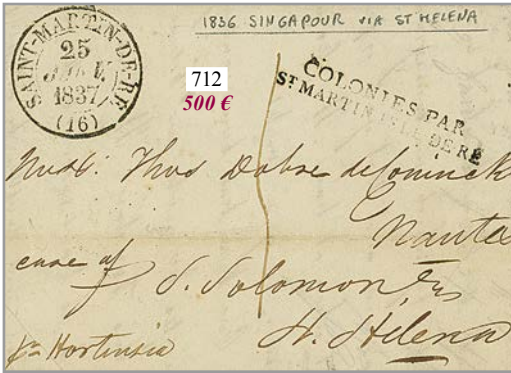 1836 SINGAPOUR VIA ST HELENA
SAINT-MARTIN-DE-RE
25
JANV.
1837
(16)
712
500 €
COLONIES PAR
ST MARTIN ILE DE RE
Thos Dobree
Nantes
care of
S. Solomon
St. Hélena
pr Hortensia